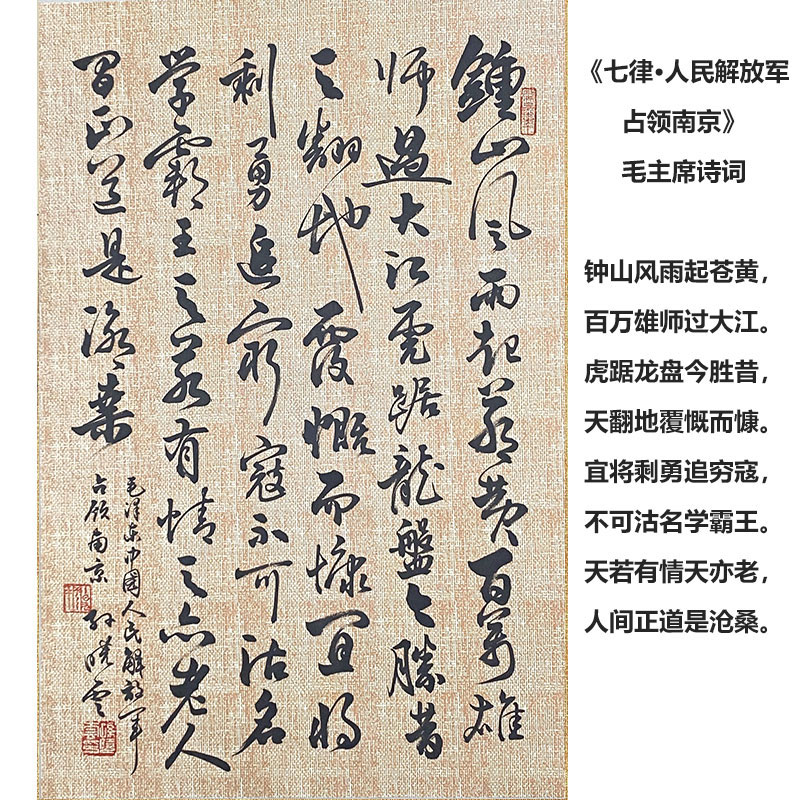 鍾山风雨起蒼黄百萬雄
师過大江虎踞龍盤今勝昔
天翻地覆慨而慷宜将
剩勇追窮寇不可沽名
学霸王天若有情天亦老人
间正道是滄桑
毛泽东中國人民解放军
占领南京 孙晓云
《七律·人民解放军
占领南京》
毛主席诗词
钟山风雨起苍黄，
百万雄师过大江。
虎踞龙盘今胜昔，
天翻地覆慨而慷。
宜将剩勇追穷寇，
不可沽名学霸王。
天若有情天亦老，
人间正道是沧桑。